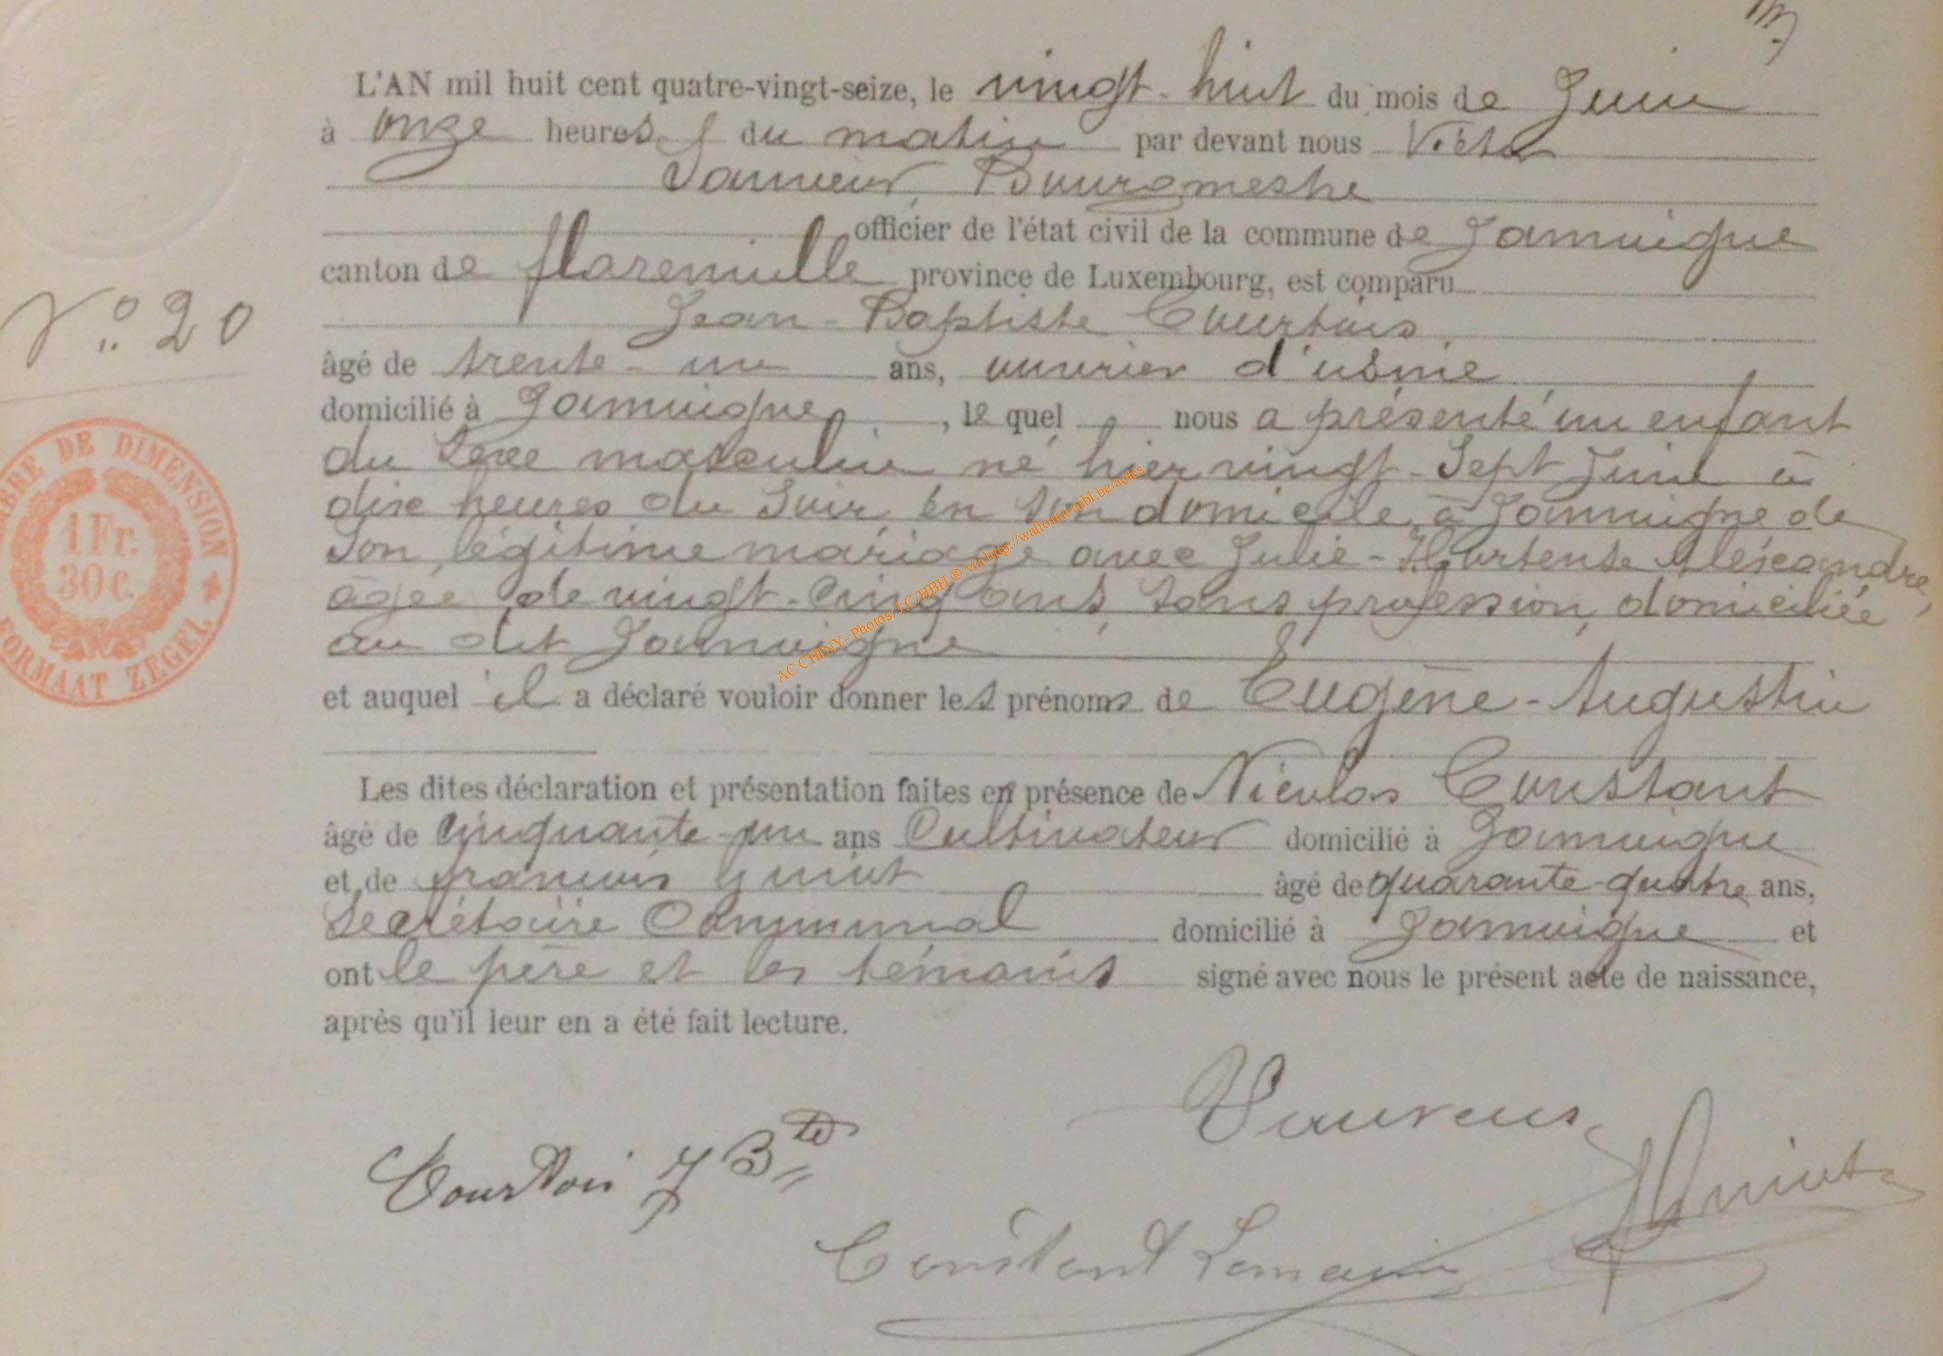 L'AN mil huit cent quatre-vingt-seize, le vingt-huit du mois de Juin
à onze heures du matin par devant nous Victor
Bourgmestre
officier de l'état civil de la commune de Jamoigne
canton de florenville province de Luxembourg, est comparu
Jean-Baptiste Courtois
N° 20
âgé de trente-un ans, ouvrier d'usine
domicilié à Jamoigne, lequel nous a présenté un enfant
du Sexe masculin né hier vingt-Sept Juin à
dix heures du Soir, en son domicile, à Jamoigne de
Son légitime mariage avec Julie-Hortense Alexandre,
âgée de vingt-cinq ans, Sans profession, domiciliée
au dit Jamoigne
et auquel il a déclaré vouloir donner les prénoms de Eugène-Augustin
Les dites déclaration et présentation faites en présence de Nicolas Constant
âgé de cinquante-un ans Cultivateur domicilié à Jamoigne
et de françois Guiot âgé de quarante-quatre ans,
Secrétaire Communal domicilié à Jamoigne et
ont le père et les témoins signé avec nous le présent acte de naissance,
après qu'il leur en a été fait lecture.
TIMBRE DE DIMENSION
1 Fr.
30 c.
FORMAAT ZEGEL
AC CHINY - Photos J.C.MBH ® via http://wallonia-asbl.be/actes
Courtois J Bte
Constant
Guiot